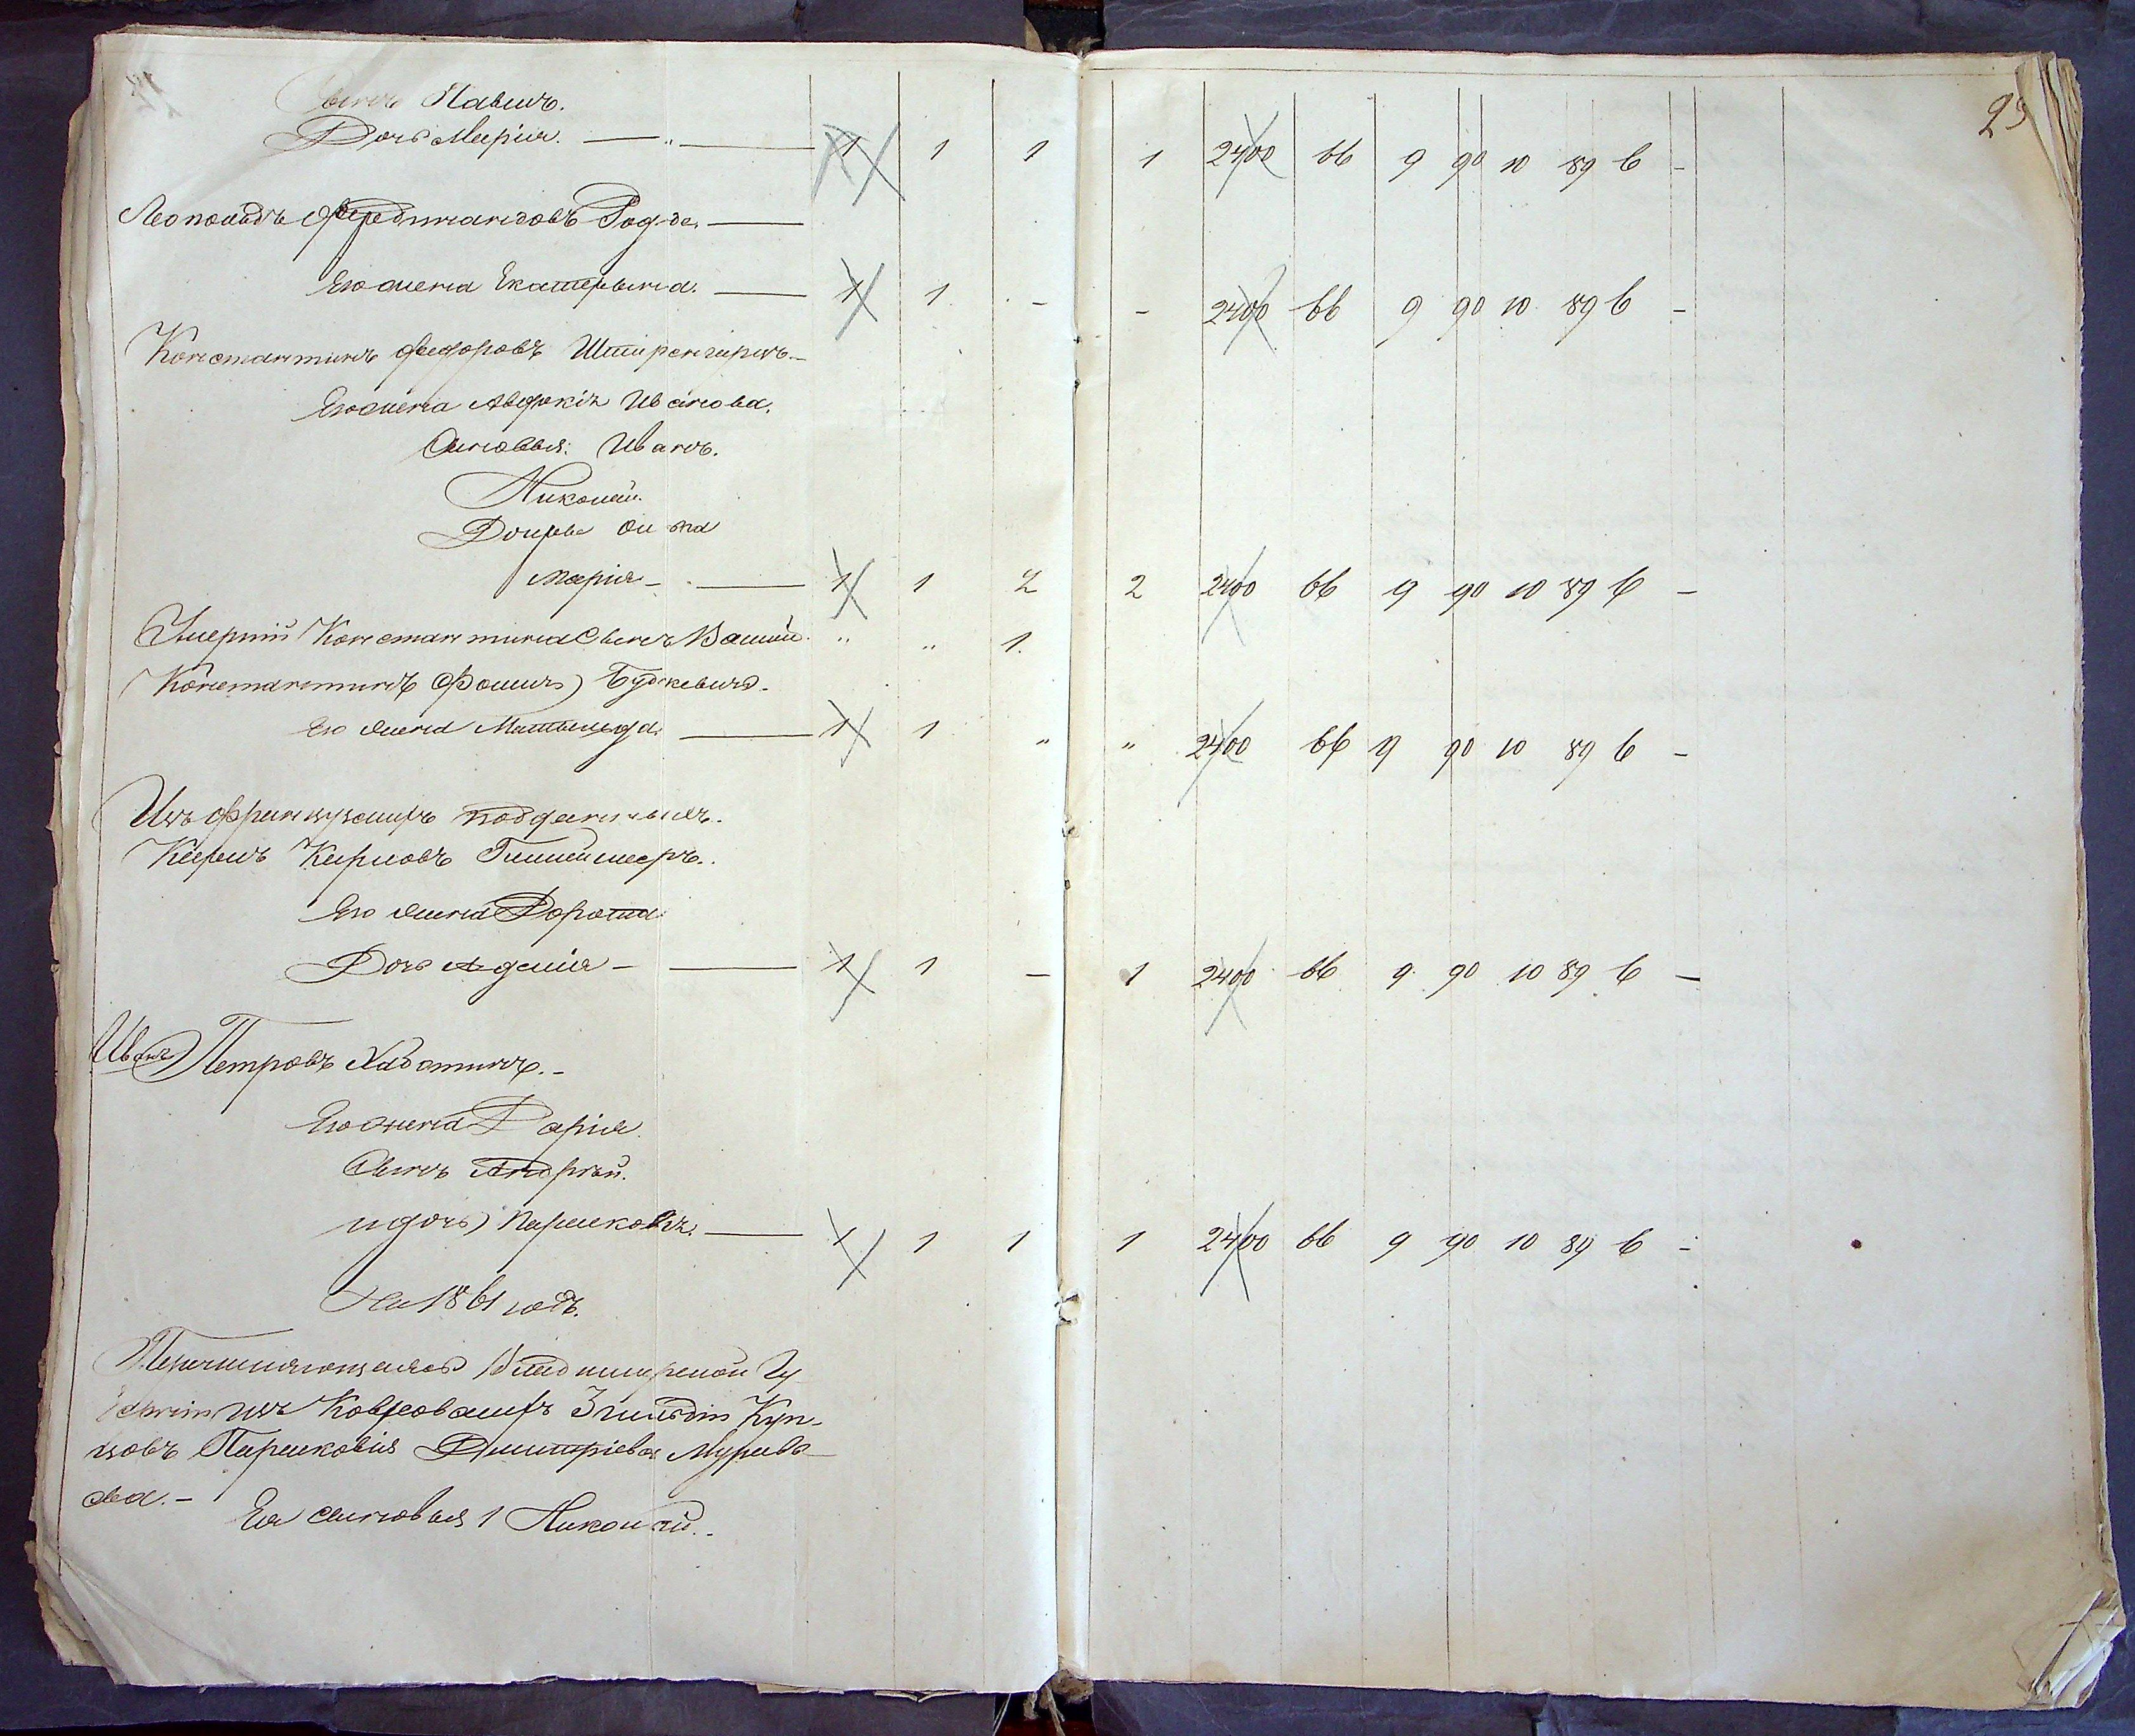 Сынъ Павелъ.
Дочь Марія. — „ — 1 1 1 1 2400 66 9 90 10 89 6 -
29
Леопольдъ Фердинандовъ Рогде. —
Его жена Екатерина. — 1 1 - - 2400 66 9 90 10 89 6 -
Константинъ Федоровъ
Его жена Ивáнова.
Сыновья: Иванъ.
Николай.
Дочери
Марія - — 1 1 2 2 2400 66 9 90 10 89 6 -
Умершій Константина Сынъ „ „ 1.
Константинъ Фомичъ Будкевичъ.
Его жена Матильда — 1 1 „ „ 2400 66 9 90 10 89 6 -
Изъ французскихъ подданныхъ.
Карлъ Карловъ
Его жена Доротa
Дочь — 1 1 - 1 2400 66 9 90 10 89 6 -
Иванъ Петровъ
Его жена Дарія.
Сынъ Андрей.
и дочь — 1 1 1 1 2400 66 9 90 10 89 6 -
На 1861 годъ.
Владимирской Гу
берніи изъ Ковровскихъ 3 гильдіи Куп-
цовъ Парасковія Дмитріева Муравь-
ева. -
Ея сыновья 1 Николай.